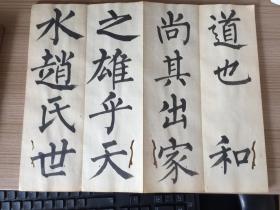 道也 和
尚其出家
之雄乎天
水趙氏世